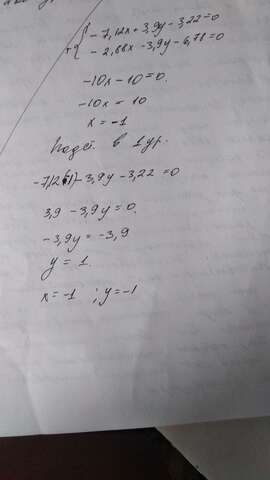 { - 7,12x + 3,9y - 3,22 = 0
+ - 2,88x - 3,9y - 6,78 = 0
-10x - 10 = 0.
-10x = 10
x = -1
Подст. в 1 ур.
-7,12(-1) - 3,9y - 3,22 = 0
3,9 - 3,9y = 0.
-3,9y = -3,9
y = 1.
x = -1 ; y = -1